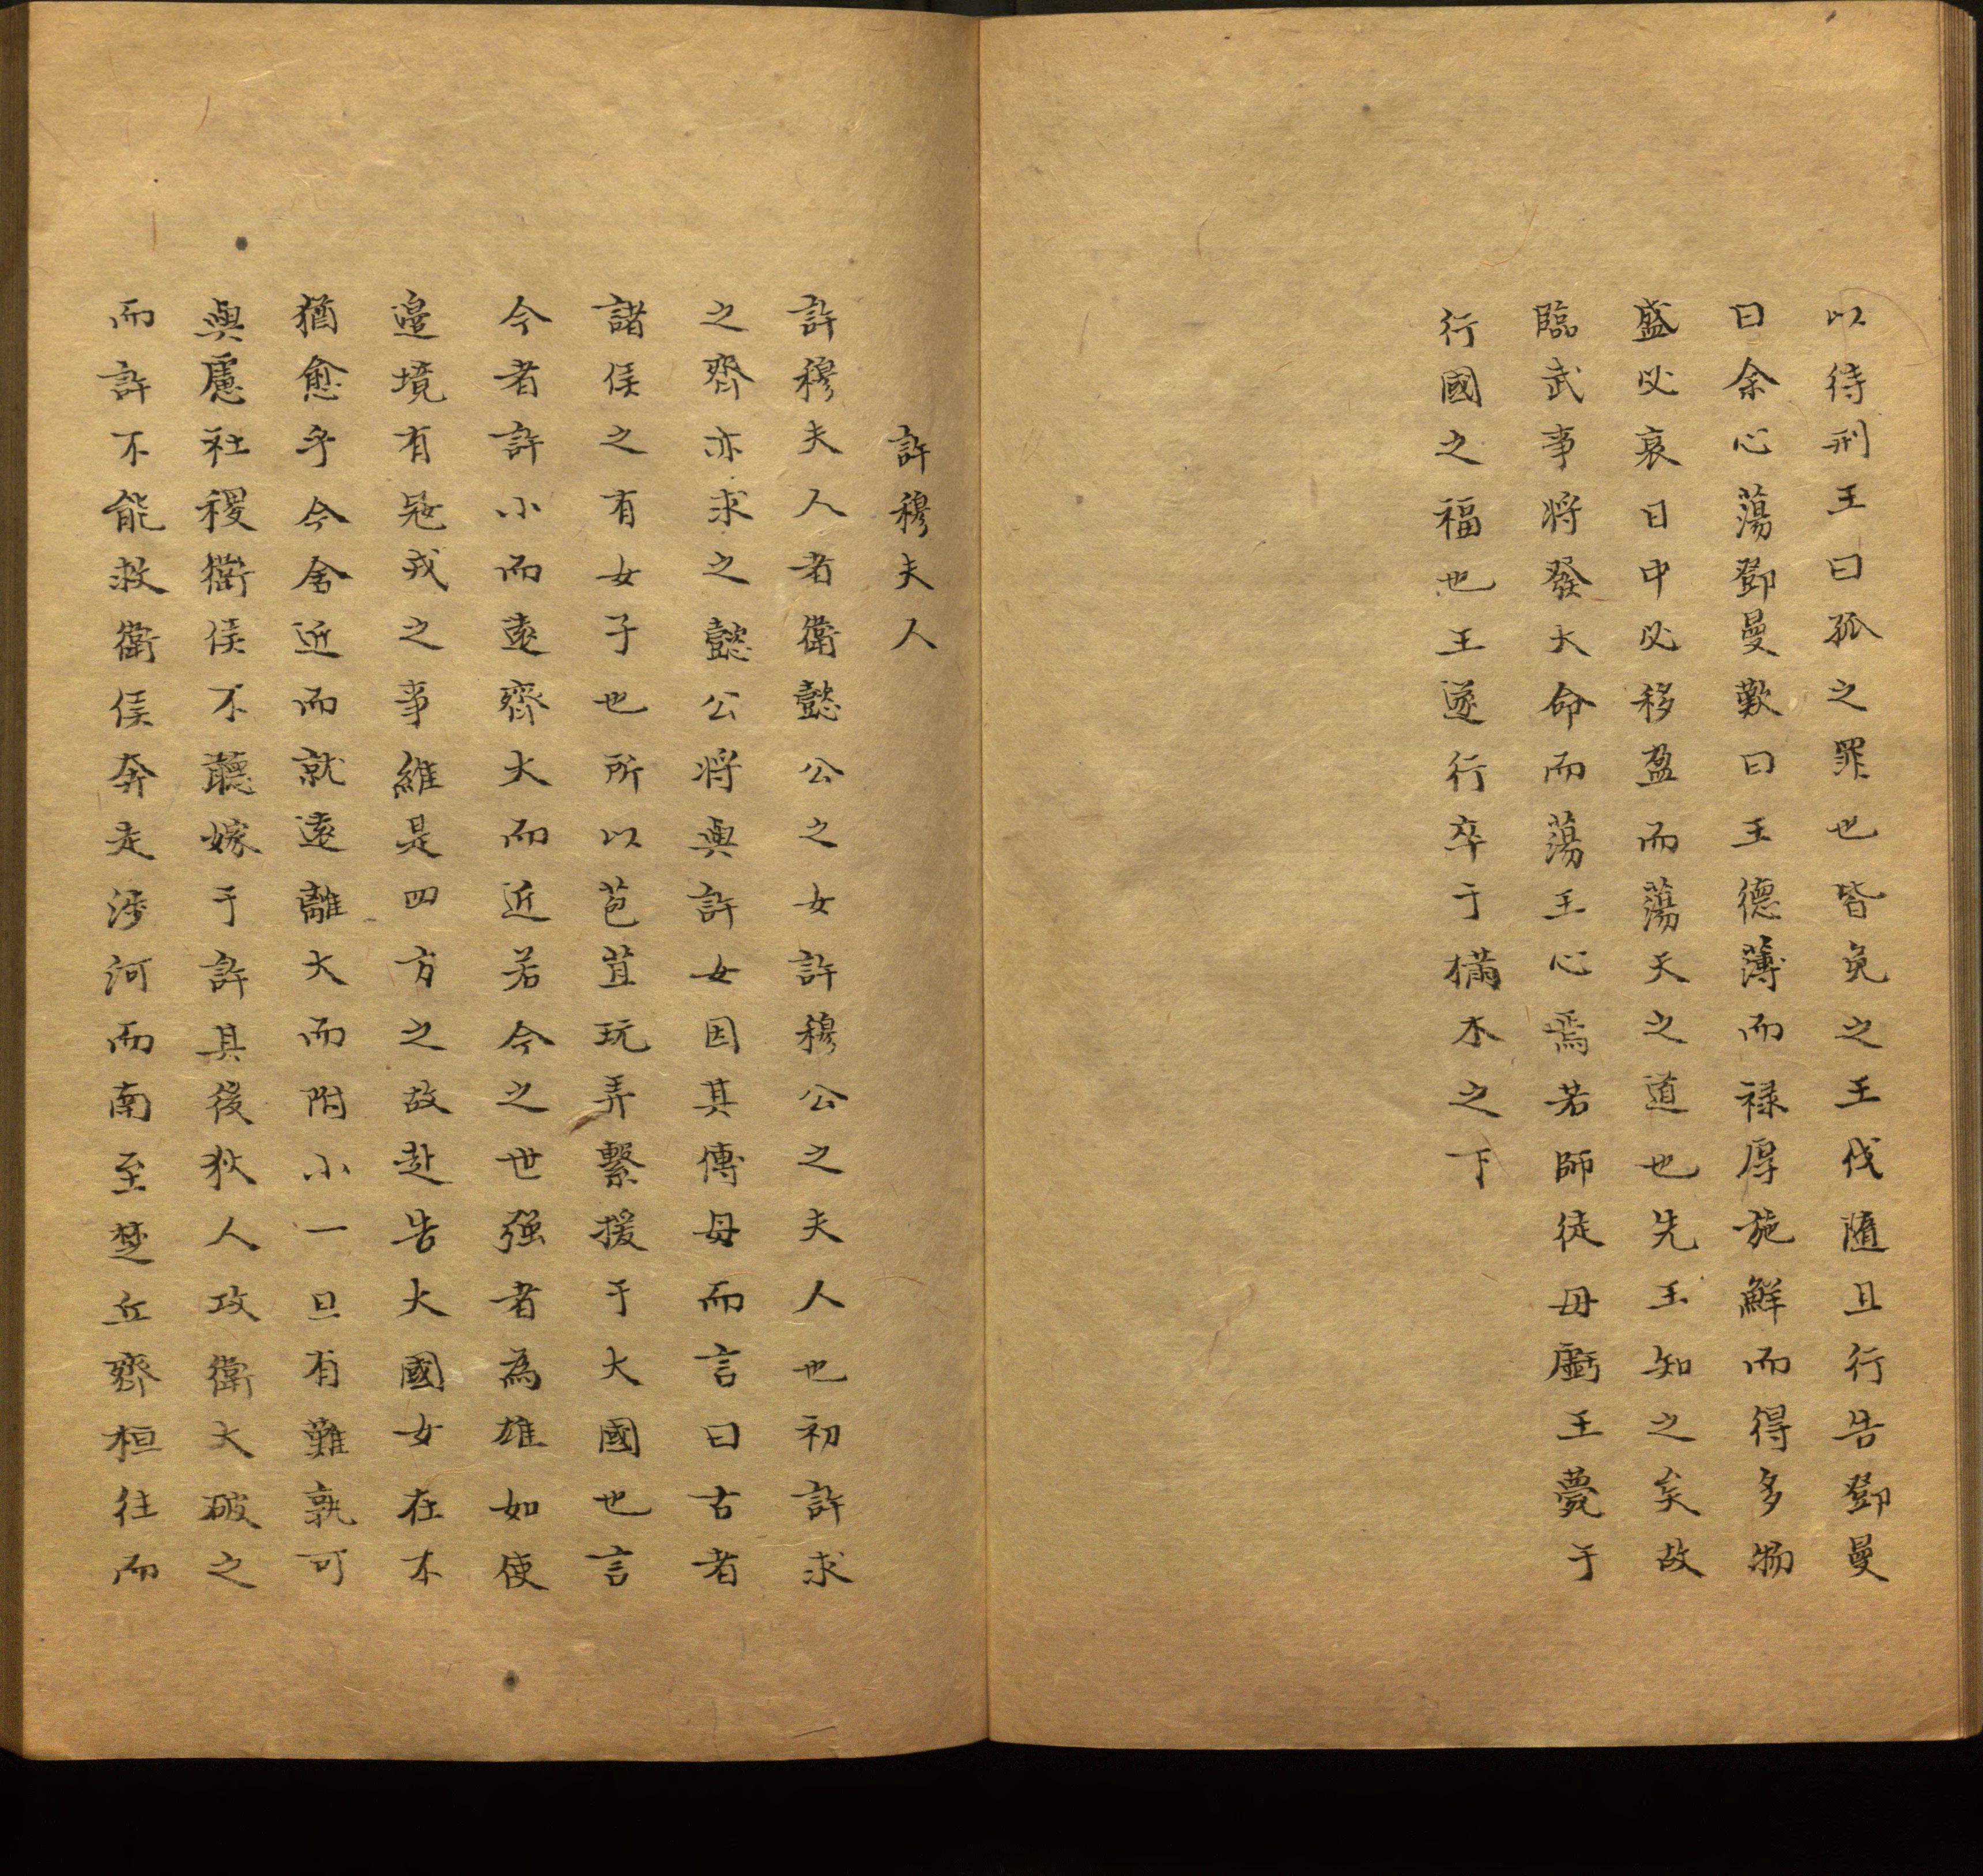 以待刑王曰孤之罪也皆免之王伐隨且行告鄧曼
曰余心蕩鄧曼歎曰王德薄而祿厚施鮮而得多物
盛必衰日中必移盈而蕩天之道也先王知之矣故
臨武事將發大命而蕩王心焉若師徒毋虧王薨于
行國之福也王遂行卒于樠木之下
許穆夫人
許穆夫人者衛懿公之女許穆公之夫人也初許求
之齊亦求之懿公將與許女因其傅母而言曰古者
諸侯之有女子也所以苞苴玩弄繫援于大國也言
今者許小而遠齊大而近若今之世強者為雄如使
邊境有寇戎之事維是四方之故赴告大國女在不
猶愈乎今舍近而就遠離大而附小一旦有難孰可
與慮社稷衛侯不聽嫁于許其後狄人攻衛大破之
而許不能救衛侯奔走涉河而南至楚丘齊桓往而